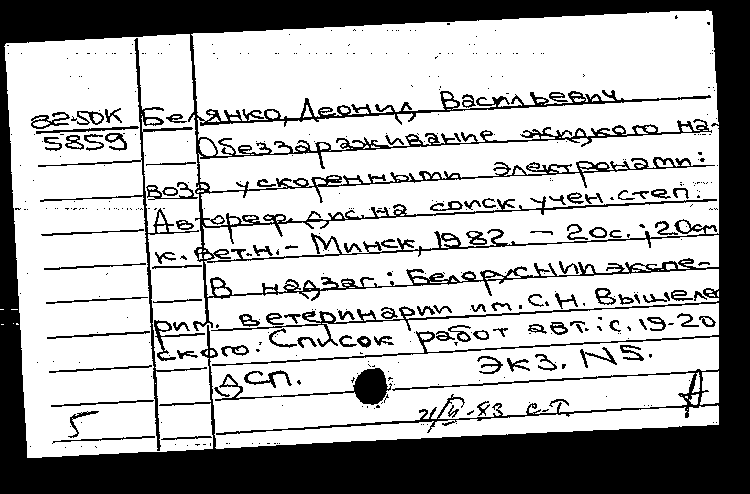 82-50К Белянко, Леонид Васильевич.
5859 Обеззараживание жидкого на-
воза ускоренными электронами:
Автореф. дис. на соиск. учен. степ.
к. вет. н. - Минск, 1982. - 20с.; 20см
В надзаг.: Белорус НИИ экспе-
рим. ветеринарии им. С.Н. Вышелес
ского. Список работ авт.: с. 19-20
ДСП. Экз. N5.
5 С-Т. А